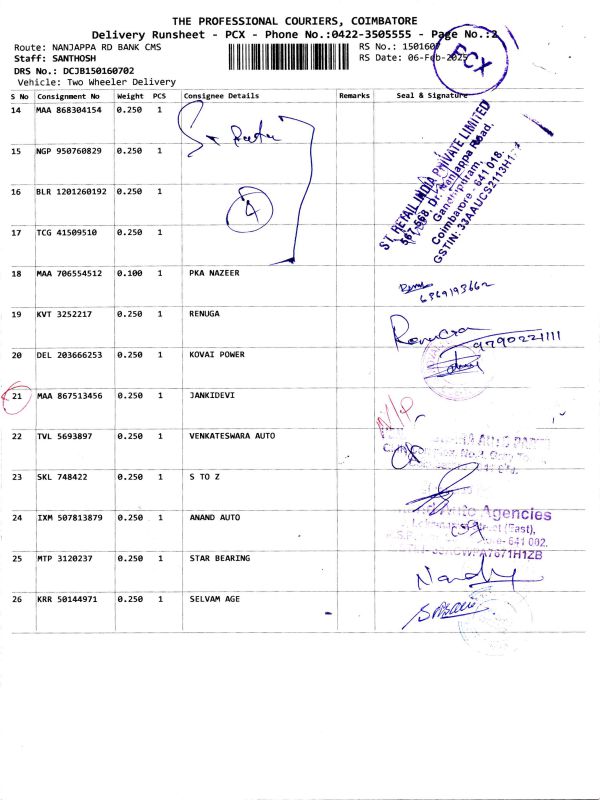 THE PROFESSIONAL COURIERS, COIMBATORE
Delivery Runsheet - PCX - Phone No.:0422-3505555 - Page No.:2
Route: NANJAPPA RD BANK CMS RS No.: 1501607
Staff: SANTHOSH RS Date: 06-Feb-2025
DRS No.: DCJB150160702
Vehicle: Two Wheeler Delivery
PCX
S No Consignment No Weight PCS Consignee Details Remarks Seal & Signature
14 MAA 868304154 0.250 1
15 NGP 950760829 0.250 1
16 BLR 1201260192 0.250 1
4
17 TCG 41509510 0.250 1
ST RETAIL INDIA PRIVATE LIMITED
567-568, Dr. Nanjappa Road,
Gandhipuram,
Coimbatore - 641 018.
18 MAA 706554512 0.100 1 PKA NAZEER
6369193662
19 KVT 3252217 0.250 1 RENUGA
9790221111
20 DEL 203666253 0.250 1 KOVAI POWER
21 MAA 867513456 0.250 1 JANKIDEVI
22 TVL 5693897 0.250 1 VENKATESWARA AUTO
23 SKL 748422 0.250 1 S TO Z
24 IXM 507813879 0.250 1 ANAND AUTO
Auto Agencies
(East),
641 002.
25 MTP 3120237 0.250 1 STAR BEARING
26 KRR 50144971 0.250 1 SELVAM AGE